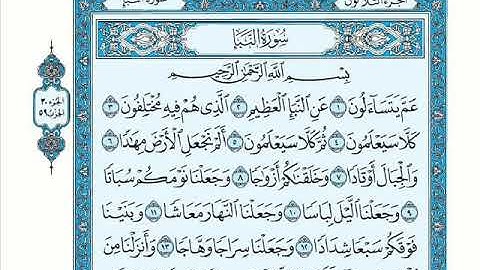 الجزء الثلاثون سورة النبإ
سُورَةُ النَّبَإِ
بِسْمِ ٱللَّهِ ٱلرَّحْمَٰنِ ٱلرَّحِيمِ
عَمَّ يَتَسَآءَلُونَ ١ عَنِ ٱلنَّبَإِ ٱلْعَظِيمِ ٢ ٱلَّذِى هُمْ فِيهِ مُخْتَلِفُونَ ٣
كَلَّا سَيَعْلَمُونَ ٤ ثُمَّ كَلَّا سَيَعْلَمُونَ ٥ أَلَمْ نَجْعَلِ ٱلْأَرْضَ مِهَٰدًا ٦
وَٱلْجِبَالَ أَوْتَادًا ٧ وَخَلَقْنَٰكُمْ أَزْوَٰجًا ٨ وَجَعَلْنَا نَوْمَكُمْ سُبَاتًا
٩ وَجَعَلْنَا ٱلَّيْلَ لِبَاسًا ١٠ وَجَعَلْنَا ٱلنَّهَارَ مَعَاشًا ١١ وَبَنَيْنَا
فَوْقَكُمْ سَبْعًا شِدَادًا ١٢ وَجَعَلْنَا سِرَاجًا وَهَّاجًا ١٣ وَأَنزَلْنَا مِنَ
الجزء ٣٠
الحزب ٥٩